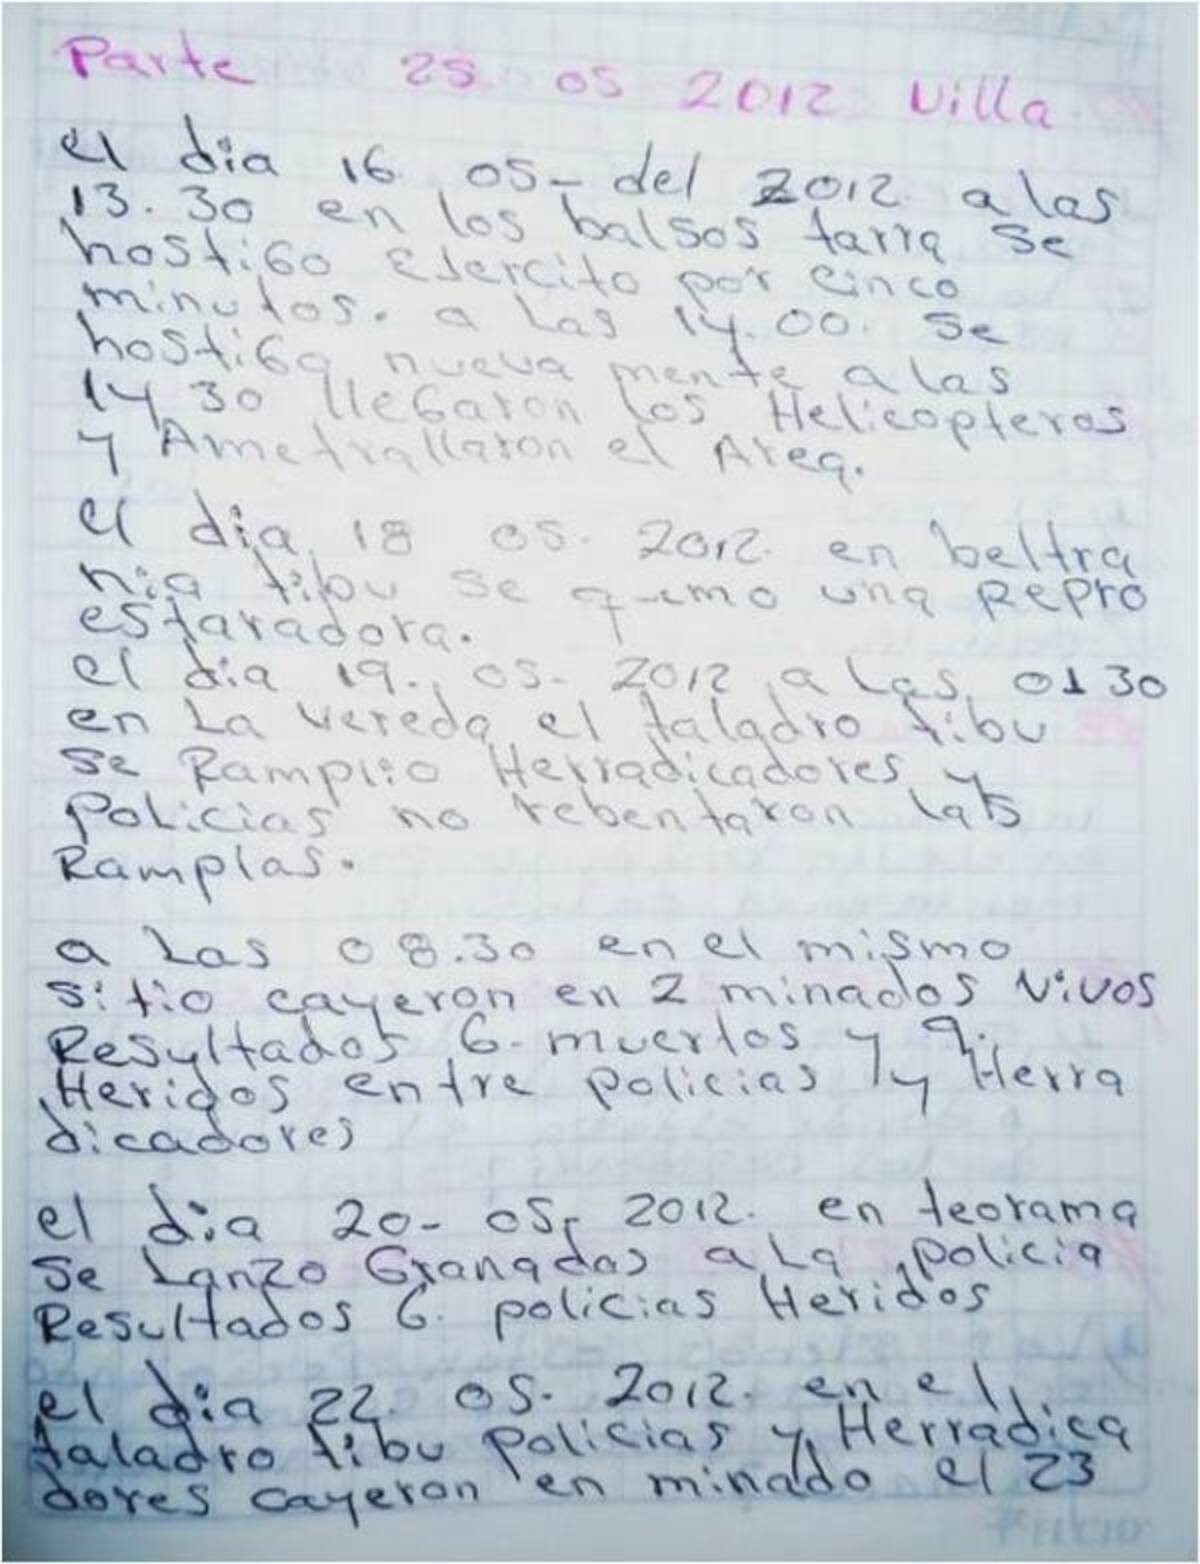 Parte 25 05 2012 Villa
el dia 16 05- del 2012 a las
13.30 en los balsos tarra se
hostiGo EJercito por Cinco
minutos. a las 14.00. Se
hostiGa nueva mente a las
14,30 lleGaron los Helicopteros
y Ametrallaron el Area.
el dia 18 05. 2012. en beltra
nia tibu se quemo una Repro
esfaradora.
el dia 19., 05- 2012 a las 01 30
en La vereda el taladro tibu
Se Ramplio Herradicadores y
Policias no rebentaron las
Ramplas.
a Las 08.30 en el mismo
Sitio cayeron en 2 minados Vivos
Resultados 6- muertos y 9.
Heridos entre policias y Herra
dicadores
el dia 20- 05, 2012. en teorama
Se Lanzo Granadas a La policia
Resultados 6. policias Heridos
el dia 22. 05. 2012. en el
taladro tibu Policias y Herradica
dores cayeron en minado el 23